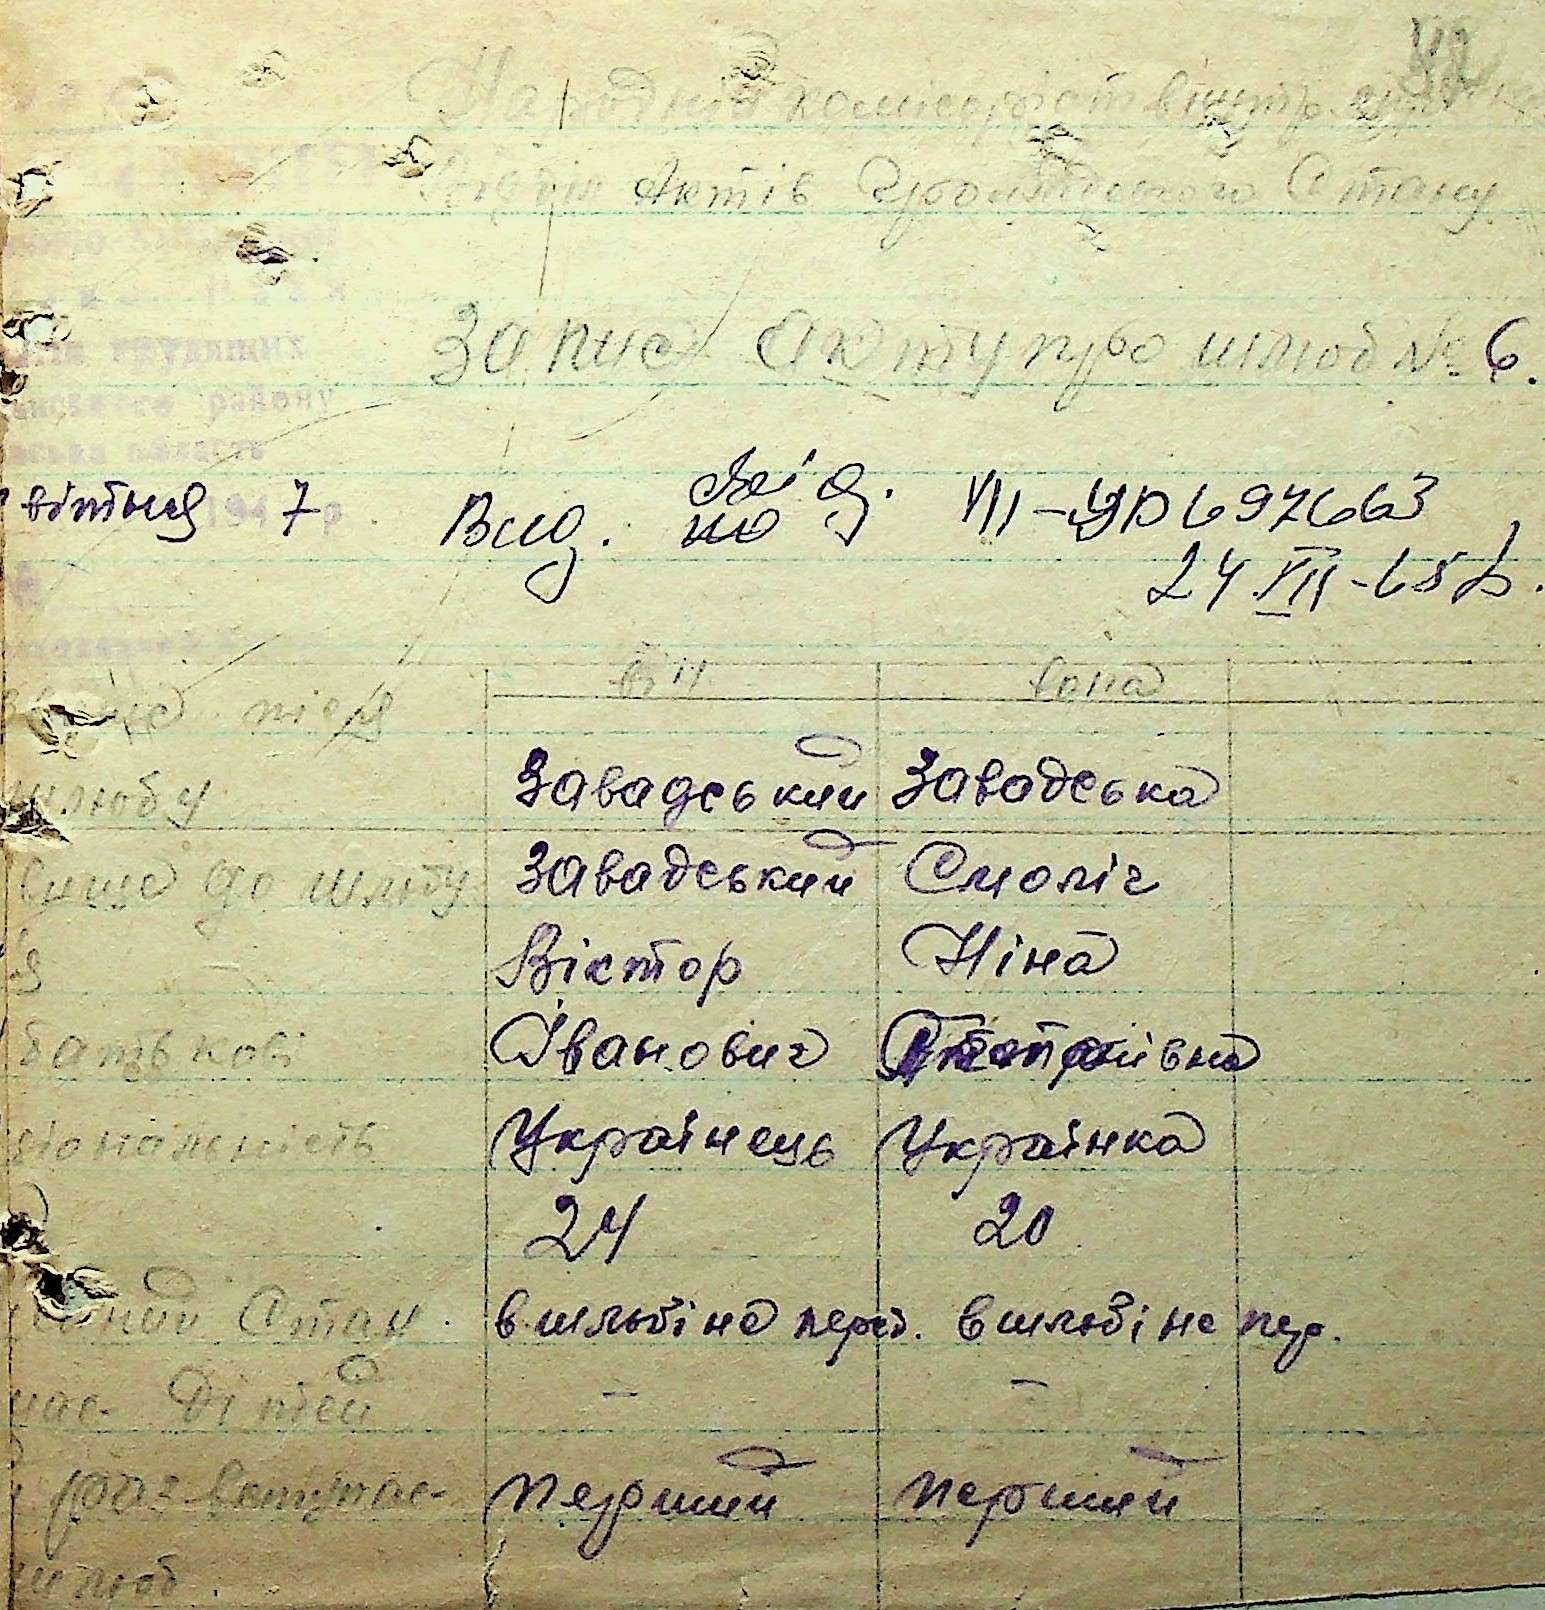 Народній комісаріат внутр.
Актів Громадського Стану
Запис Акту про шлюб № 6.
району
область
вітня 1947 р.
Вид. повід. VII-УР 697663
24.VII-65 р.
він вона
після
шлюбу Завадський Завадська
вище до шлюбу Завадський Смоліч
я Віктор Ніна
батькові Іванович
ціональність Українець Українка
24 20
Стан в шлюбі не переб. в шлюбі не пер.
має дітей – –
раз вступає Перший Перший
шлюб.